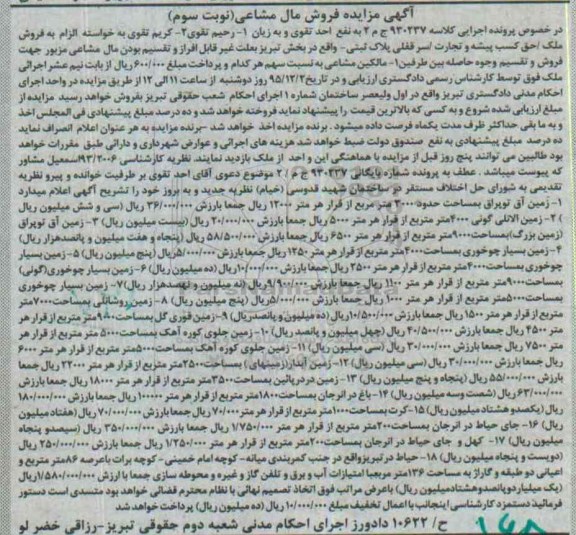 آگهی مزایده فروش مال مشاعی(نوبت سوم)
در خصوص پرونده اجرایی کلاسه ۹۳۰۲۳۷ ج م ۲ به نفع احد تقوی و به زیان ۱- رحیم تقوی۲- کریم تقوی به خواسته الزام به فروش
ملک /حق کسب پیشه و تجارت /سر قفلی پلاک ثبتی- واقع در بخش تبریز بعلت غیر قابل افراز و تقسیم بودن مال مشاعی مزبور جهت
فروش و تقسیم وجوه حاصله بین طرفین۱- مالکین مشاعی به نسبت سهم هر کدام و پرداخت مبلغ ۶۰۰/۰۰۰ریال از بابت نیم عشر اجرائی
ملک فوق توسط کارشناس رسمی دادگستری ارزیابی و در تاریخ۹۵/۱۲/۲ روز دوشنبه از ساعت ۱۱ الی ۱۲ از طریق مزایده در واحد اجرای
احکام مدنی دادگستری تبریز واقع در اول ولیعصر ساختمان شماره ۱ اجرای احکام شعب حقوقی تبریز بفروش خواهد رسید مزایده از
مبلغ ارزیابی شده شروع و به کسی که بالاترین قیمت را پیشنهاد نماید فروخته خواهد شد و ده درصد مبلغ پیشنهادی فی المجلس اخذ
و به ما بقی حداکثر ظرف مدت یکماه فرصت داده میشود . برنده مزایده اخذ خواهد شد -برنده مزایده به هر عنوان اعلام انصراف نماید
ده درصد مبلغ پیشنهادی به نفع صندوق دولت ضبط خواهد شد هزینه های اجرائی و عوارض شهرداری و دارائی طبق مقررات خواهد
بود طالبین می توانند پنج روز قبل از مزایده با هماهنگی این واحد از ملک بازدید نمایند. نظریه کارشناسی
که پیوست میباشد . عطف به پرونده شماره بایگانی ۹۳۰۲۳۷ ج م / ۲ موضوع دعوی آقای احد تقوی بر ظرفیت خوانده و پیرو نظریه
تقدیمی به شورای حل اختلاف مستقر در ساختمان شهید قدوسی (خیام) نظریه جدید و به روز خود را تشریح آگهی اعلام میدارد
۱- زمین آق توپراق بمساحت حدود۳۰۰۰ متر مربع از قرار هر متر ۱۲۰۰۰ ریال جمعا بارزش ۳۶/۰۰۰/۰۰۰ ریال (سی و شش میلیون ریال
) ۲- زمین الانلی گونی ۴۰۰۰متر متربع از قرار هر متر ۵۰۰۰ ریال جمعا بارزش ۲۰/۰۰۰/۰۰۰ ریال (بیست میلیون ریال) ۳- زمین آق توپراق
(زمین بزرگ)بمساحت۹۰۰۰متر متربع از قرار هر متر ۶۵۰۰ ریال جمعا بارزش ۵۸/۵۰۰/۰۰۰ ریال (پنجاه و هفت میلیون و پانصدهزار ریال)
۴- زمین بسیار چوخوری بمساحت۴۰۰۰متر متربع از قرار هر متر ۱۲۵۰ ریال جمعا بارزش ۵/۰۰۰/۰۰۰ریال (پنج میلیون ریال) ۵- زمین بسیار
چوخوری بمساحت۴۰۰۰متر متربع از قرار هر متر ۲۵۰۰ ریال جمعا بارزش ۱۰/۰۰۰/۰۰۰ریال (ده میلیون ریال) ۶- زمین بسیار چوخوری(گونی)
بمساحت۹۰۰۰متر مربع از قرار هر متر ۱۱۰۰ ریال جمعا بارزش ۹/۹۰۰/۰۰۰ ریال (نه میلیون و نهصدهزار ریال)۷- زمین بسیار چوخوری
بمساحت۵۰۰۰متر متربع از قرار هر متر ۱۰۰۰ ریال جمعا بارزش ۵/۰۰۰/۰۰۰ ریال (پنج میلیون ریال) ۸- زمین بمساحت۷۰۰۰متر
متربع از قرار هر متر ۱۵۰۰ ریال جمعا بارزش ۱۰/۵۰۰/۰۰۰ریال (ده میلیون و پانصدریال) ۹-زمین قوری گل بمساحت۹۰۰۰متر مربع از قرار هر
متر ۴۵۰۰ ریال جمعا بارزش ۴۰/۵۰۰/۰۰۰ ریال (چهل میلیون و پانصد ریال) ۱۰- زمین جلوی کوره آهک بمساحت۵۰۰۰ متر متربع از قرار هر
متر ۷۵۰۰ ریال جمعا بارزش ۳۰/۰۰۰/۰۰۰ ریال (سی میلیون ریال) ۱۱- زمین جلوی کوره آهک بمساحت۵۰۰۰متر متربع از قرار هر متر ۶۰۰۰
ریال جمعا بارزش ۳۰/۰۰۰/۰۰۰ ریال (سی میلیون ریال) ۱۲- زمین آبدار(زمینهای ) بمساحت۲۵۰۰متر متربع از قرار هر متر ۲۲۰۰۰ ریال جمعا
بارزش ۵۵/۰۰۰/۰۰۰ ریال (پنجاه و پنج میلیون ریال) ۱۳- زمین دردربائین بمساحت۳۵۰۰متر متربع از قرار هر متر ۱۸۰۰۰ ریال جمعا بارزش
۶۳/۰۰۰/۰۰۰ ریال (شصت وسه میلیون ریال) ۱۴- باغ در انرجان بمساحت۱۸۰۰متر متربع از قرار هر متر ۱۰۰۰۰۰ ریال جمعا بارزش ۱۸۰/۰۰۰/۰۰۰
ریال (یکصدو هشتاد میلیون ریال) ۱۵- کرت بمساحت۱۰۰۰متر متربع از قرار هر متر۷۰/۰۰۰ ریال جمعا بارزش ۷۰/۰۰۰/۰۰۰ ریال (هفتاد میلیون
ریال) ۱۶- جای حیاط در انرجان بمساحت۲۰۰متر متربع از قرار هر متر ۱/۷۵۰/۰۰۰ ریال جمعا بارزش ۳۵۰/۰۰۰/۰۰۰ ریال (سیصدو پنجاه
میلیون ریال) ۱۷- کهل و جای حیاط در انرجان بمساحت۲۰۰متر متربع از قرار هر متر ۱/۲۵۰/۰۰۰ ریال جمعا بارزش ۲۵۰/۰۰۰/۰۰۰ ریال
(دویست و پنجاه میلیون ریال) ۱۸- حیاط در تبریزواقع در جنب کمربندی میانه- کوچه امام خمینی- کوچه برات باعرصه ۸۶متر مربع و
اعیانی دو طبقه و گاراژ به مساحت ۱۳۶متر مربعبا امتیازات آب و برق و تلفن گاز و غیره و محوطه سازی جمعا با ارزش ۱/۵۸۰/۰۰۰/۰۰۰ریال
(یک میلیاردوپانصدوهشتادمیلیون ریال) باعرض مراتب فوق اتخاذ تصمیم نهائی با نظام محترم قضائی خواهد بود متسدی است دستور
فرمائید دستمزد کارشناسی اینجانب با اعمال تخفیف مبلغ ۱۰/۰۰۰/۰۰۰ ریال (ده میلیون ریال) پرداخت خواهد شد
ح/ ۱۰۶۲۲ دادورز اجرای احکام مدنی شعبه دوم حقوقی تبریز-رزاقی خضر لو